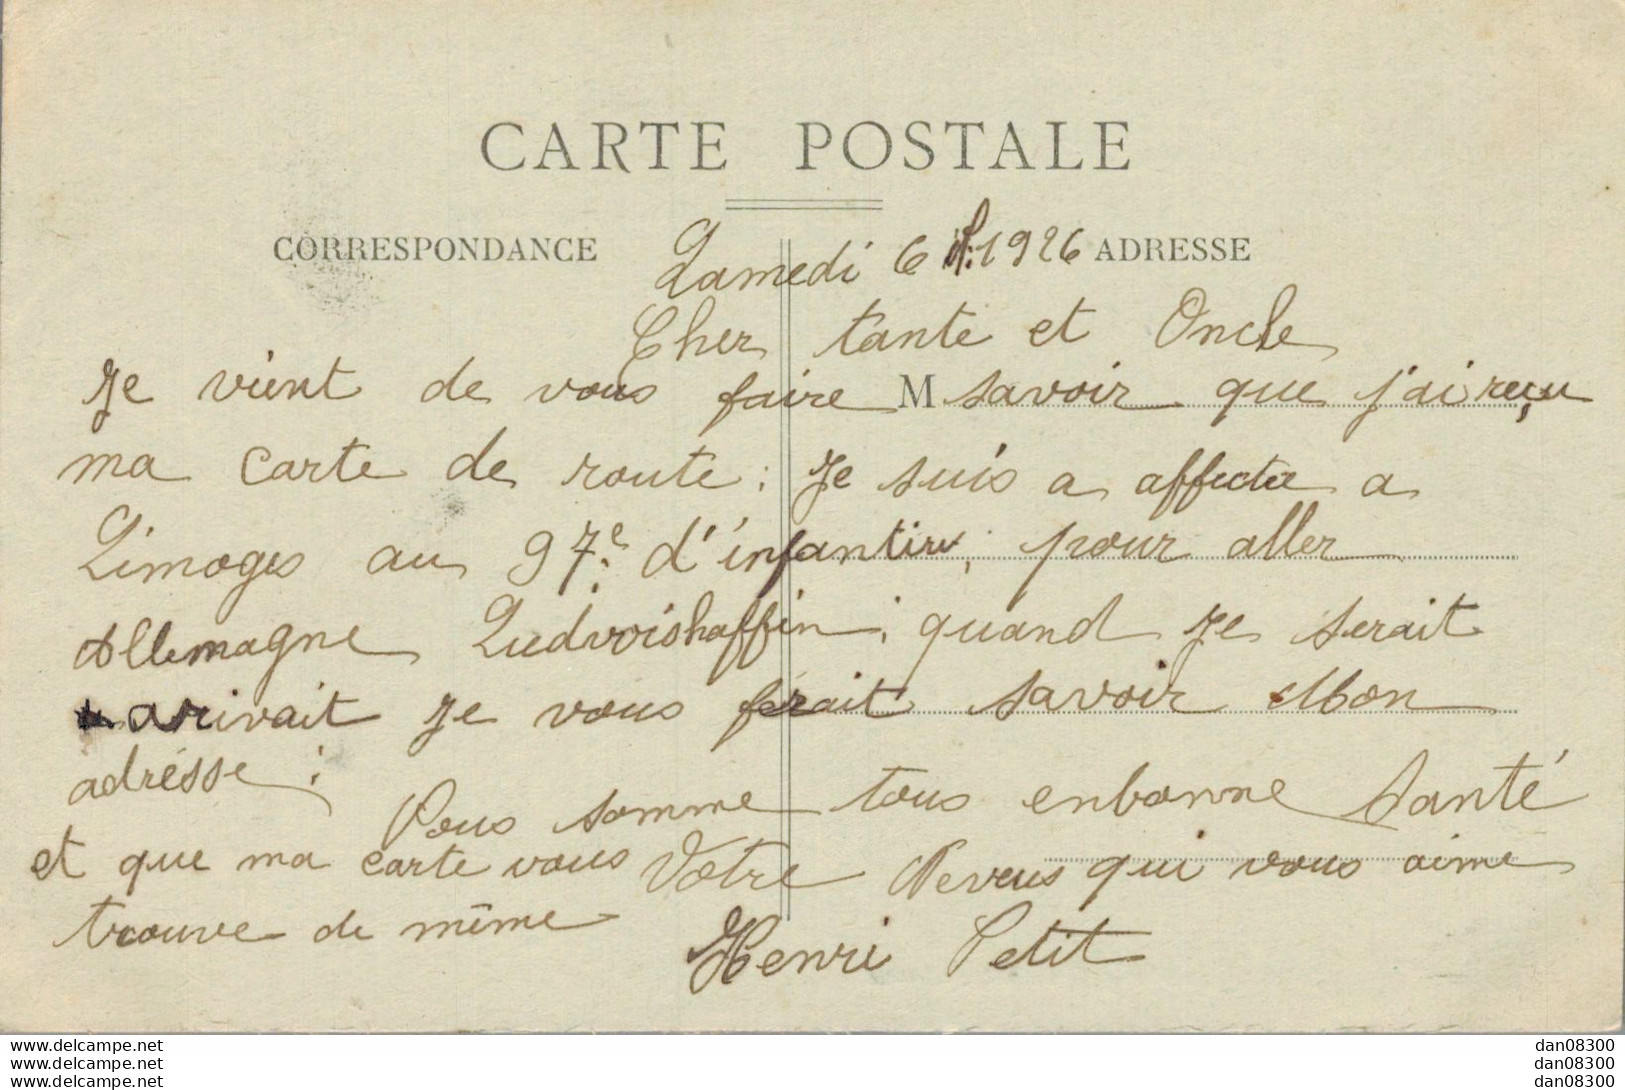 CARTE POSTALE
CORRESPONDANCE
ADRESSE
Samedi 6 1926
Cher tante et Oncle
Je vient de vous faire M savoir que j'ai reçu
ma carte de route : Je suis a affecter a
Limoges au 97e d'infantire, pour aller
Allemagne Ludvoishaffin ; quand Je serait
arivait Je vous ferait savoir Mon
adrésse ;
Nous somme tous enbonne Santé
et que ma carte vous
trouve de même
Votre Neveus qui vous aime
Henri Petit
www.delcampe.net
www.delcampe.net
www.delcampe.net
dan08300
dan08300
dan08300